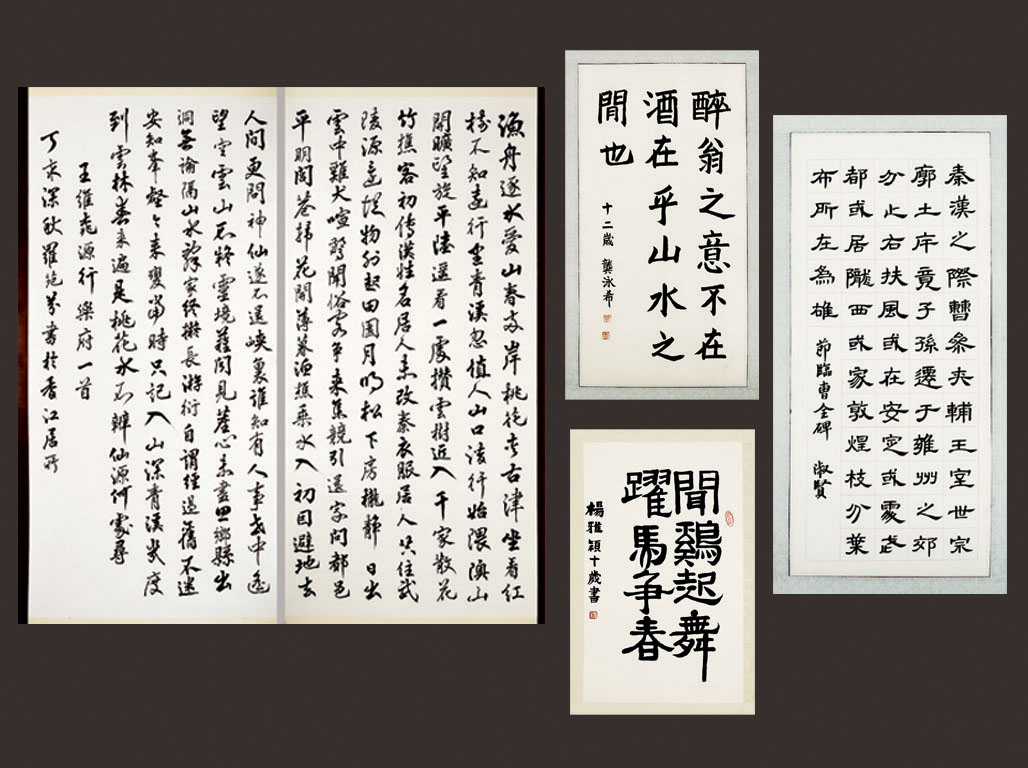 漁舟逐水愛山春兩岸桃花夾古津坐看紅
樹不知遠行盡青溪忽值人山口潛行始隈隩山
開曠望旋平陸遙看一處攢雲樹近入千家散花
竹樵客初傳漢姓名居人未改秦衣服居人共住武
陵源還從物外起田園月明松下房櫳靜日出
雲中雞犬喧驚聞俗客爭來集競引還家問都邑
平明閭巷掃花開薄暮漁樵乘水入初因避地去
人間更問神仙遂不還峽裏誰知有人事世中遙
望空雲山不疑靈境難聞見塵心未盡思鄉縣出
洞無論隔山水辭家終擬長游衍自謂經過舊不迷
安知峯壑今來變當時只記入山深青溪幾度
到雲林春來遍是桃花水不辨仙源何處尋
王維桃源行樂府一首
丁亥深秋羅艷芬書於香江居所
醉翁之意不在
酒在乎山水之
間也
十二歲 龔泳希
聞鷄起舞
躍馬爭春
楊雅穎十歲書
秦漢之際曹參夾輔王室世宗
廓土斥竟子孫遷于雍州之郊
分止右扶風或在安定或處武
都或居隴西或家敦煌枝分葉
布所在為雄
節臨曹全碑 淑賢